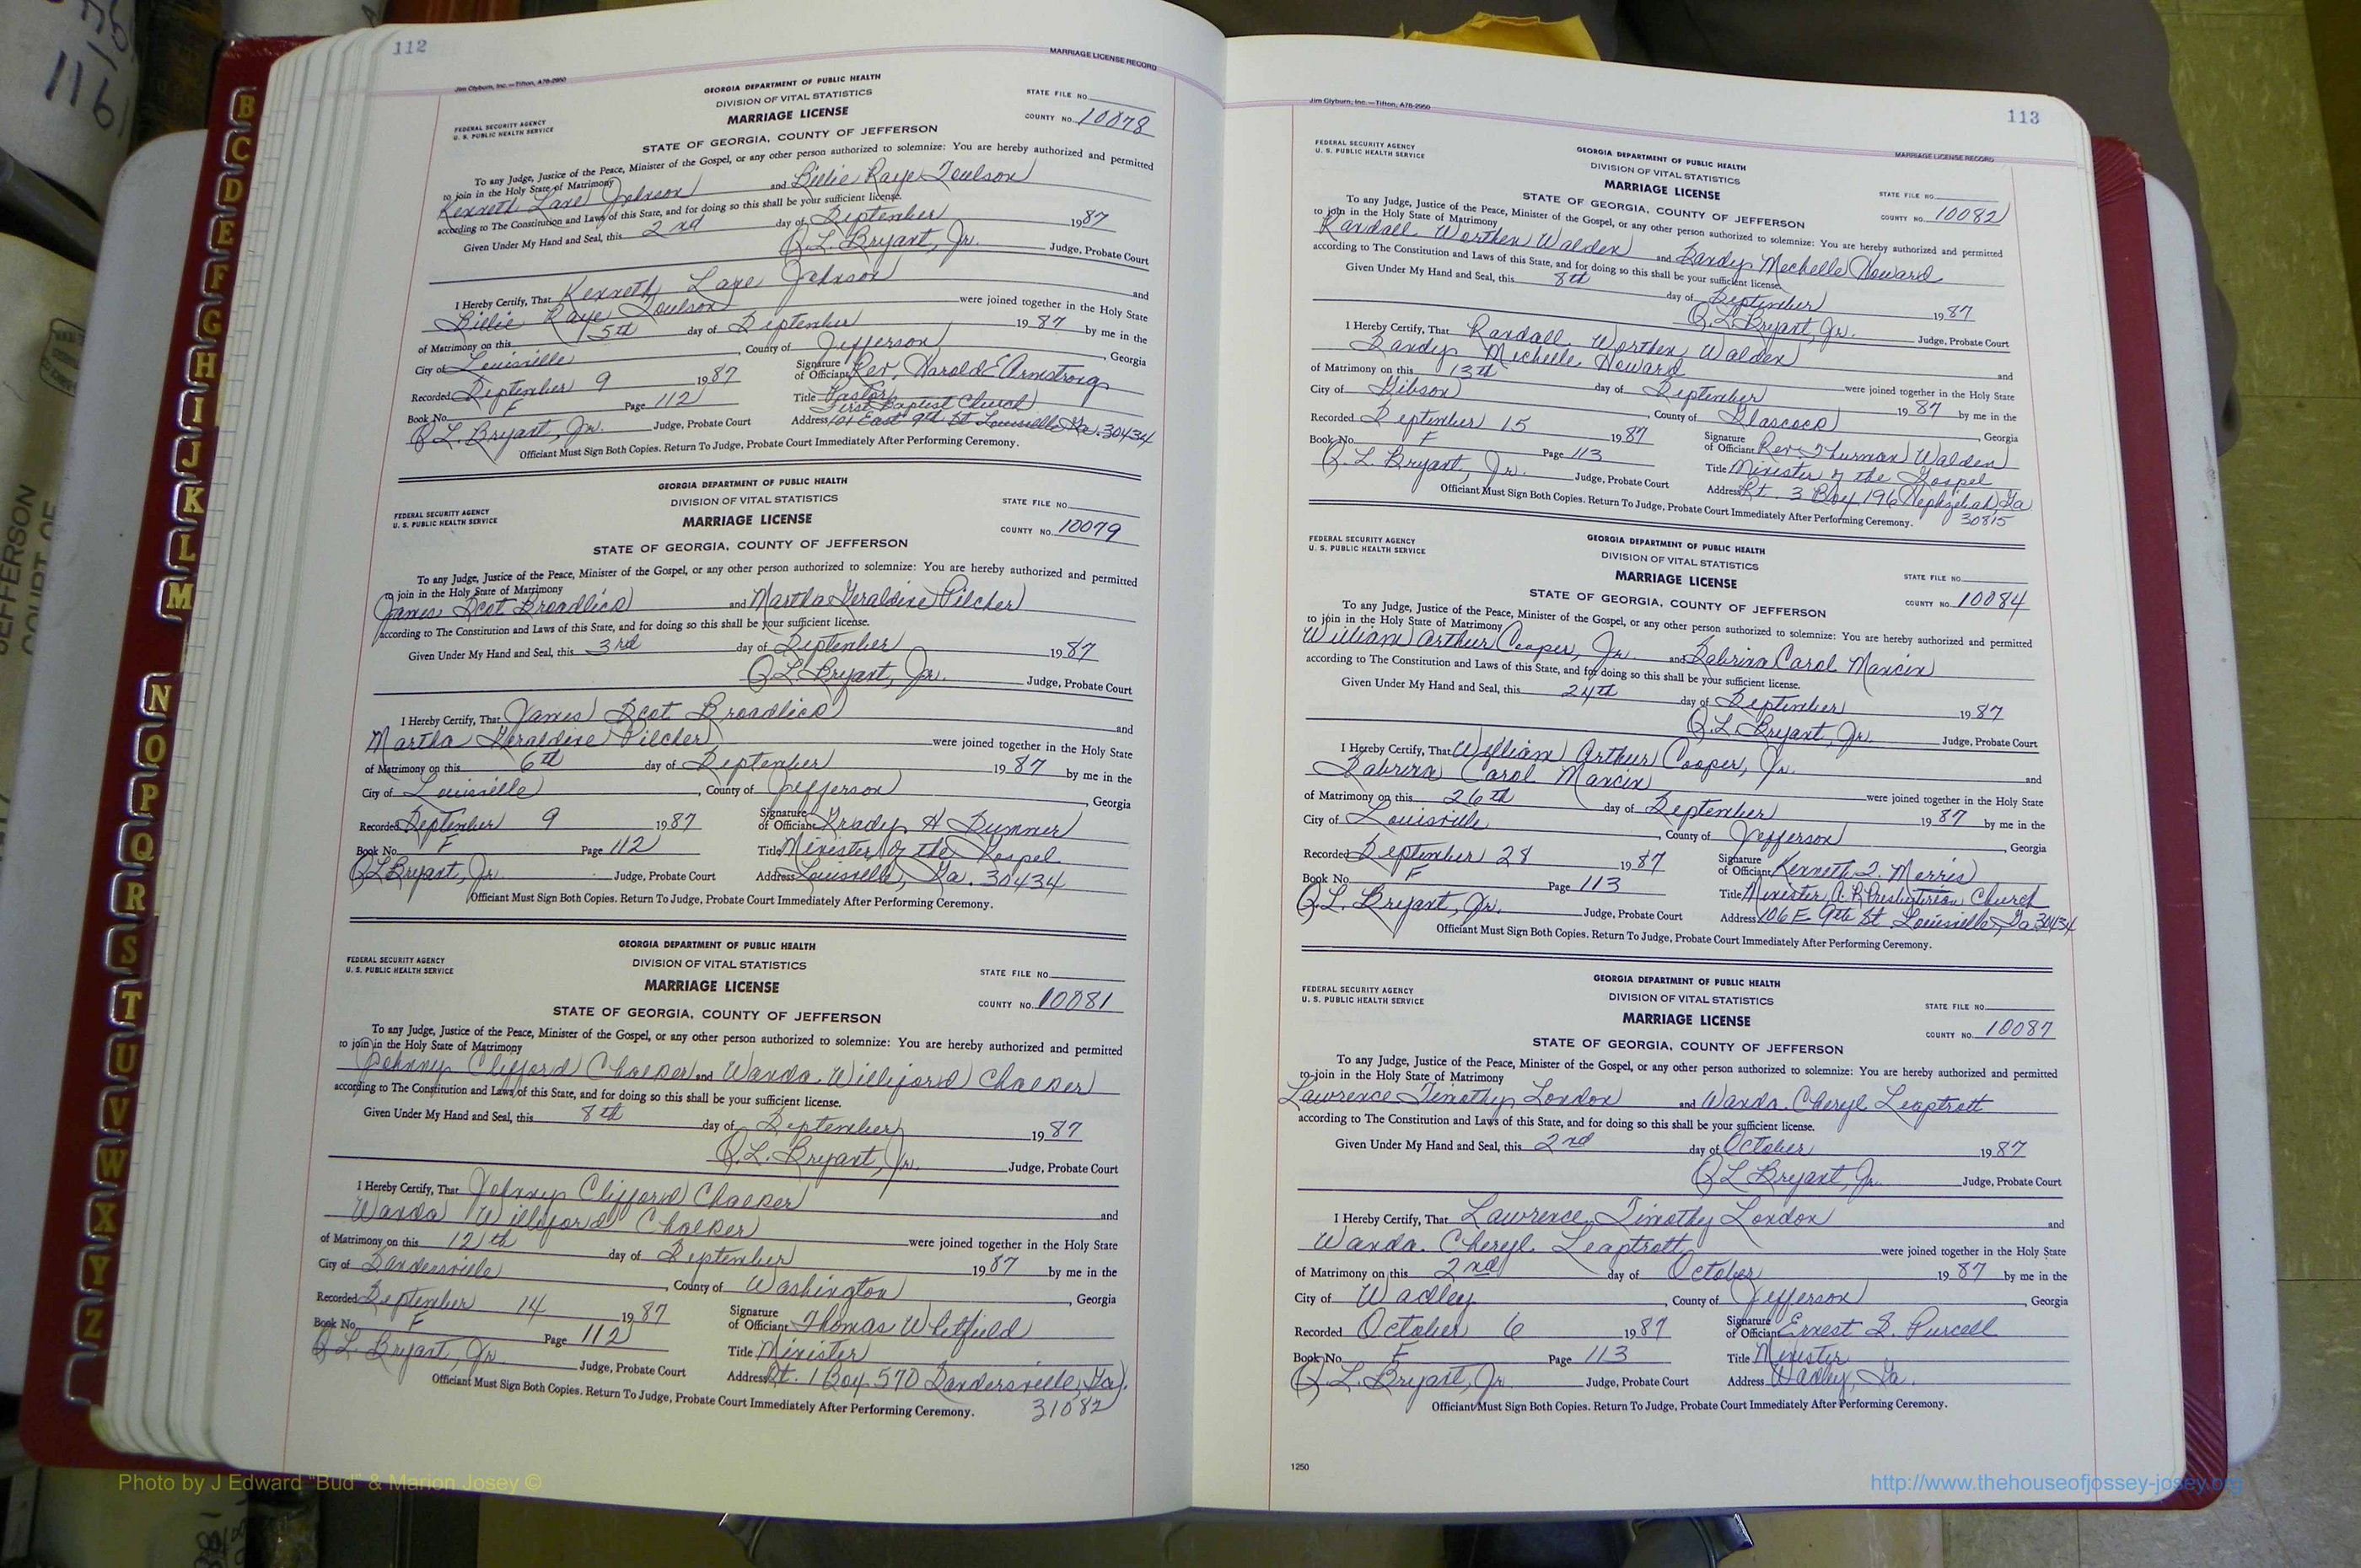 112
MARRIAGE LICENSE RECORD
Jim Clyburn, Inc.—Tifton, A78-2950
GEORGIA DEPARTMENT OF PUBLIC HEALTH
DIVISION OF VITAL STATISTICS
MARRIAGE LICENSE
FEDERAL SECURITY AGENCY
U. S. PUBLIC HEALTH SERVICE
STATE FILE NO.
COUNTY NO. 10078
STATE OF GEORGIA, COUNTY OF JEFFERSON
To any Judge, Justice of the Peace, Minister of the Gospel, or any other person authorized to solemnize: You are hereby authorized and permitted
to join in the Holy State of Matrimony
Kenneth Lane Johnson and Billie Raye Toulson
according to The Constitution and Laws of this State, and for doing so this shall be your sufficient license.
Given Under My Hand and Seal, this 2nd day of September 1987
Q.L. Bryant, Jr. Judge, Probate Court
I Hereby Certify, That Kenneth Lane Johnson and
Billie Raye Toulson were joined together in the Holy State
of Matrimony on this 5th day of September 1987 by me in the
City of Louisville, County of Jefferson, Georgia
Recorded September 9 1987 Signature of Officiant Rev. Harold E Armstrong
Book No. F Page 112 Title Pastor First Baptist Church
Q.L. Bryant, Jr. Judge, Probate Court Address 101 East 9th St Louisville Ga. 30434
Officiant Must Sign Both Copies. Return To Judge, Probate Court Immediately After Performing Ceremony.
GEORGIA DEPARTMENT OF PUBLIC HEALTH
DIVISION OF VITAL STATISTICS
MARRIAGE LICENSE
FEDERAL SECURITY AGENCY
U. S. PUBLIC HEALTH SERVICE
STATE FILE NO.
COUNTY NO. 10079
STATE OF GEORGIA, COUNTY OF JEFFERSON
To any Judge, Justice of the Peace, Minister of the Gospel, or any other person authorized to solemnize: You are hereby authorized and permitted
to join in the Holy State of Matrimony
James Scot Broadlico and Martha Geraldine Pilcher
according to The Constitution and Laws of this State, and for doing so this shall be your sufficient license.
Given Under My Hand and Seal, this 3rd day of September 1987
Q L Bryant, Jr. Judge, Probate Court
I Hereby Certify, That James Scot Broadlico and
Martha Geraldine Pilcher were joined together in the Holy State
of Matrimony on this 6th day of September 1987 by me in the
City of Louisville, County of Jefferson, Georgia
Recorded September 9 1987 Signature of Officiant Grady H Sumner
Book No. F Page 112 Title Minister of the Gospel
Q L Bryant, Jr. Judge, Probate Court Address Louisville, Ga. 30434
Officiant Must Sign Both Copies. Return To Judge, Probate Court Immediately After Performing Ceremony.
GEORGIA DEPARTMENT OF PUBLIC HEALTH
DIVISION OF VITAL STATISTICS
MARRIAGE LICENSE
FEDERAL SECURITY AGENCY
U. S. PUBLIC HEALTH SERVICE
STATE FILE NO.
COUNTY NO. 10081
STATE OF GEORGIA, COUNTY OF JEFFERSON
To any Judge, Justice of the Peace, Minister of the Gospel, or any other person authorized to solemnize: You are hereby authorized and permitted
to join in the Holy State of Matrimony
Johnny Clifford Chalker and Wanda Williford Chalker
according to The Constitution and Laws of this State, and for doing so this shall be your sufficient license.
Given Under My Hand and Seal, this 8th day of September 1987
Q.L. Bryant, Jr. Judge, Probate Court
I Hereby Certify, That Johnny Clifford Chalker and
Wanda Williford Chalker were joined together in the Holy State
of Matrimony on this 12th day of September 1987 by me in the
City of Sandersville, County of Washington, Georgia
Recorded September 14 1987 Signature of Officiant Thomas Whitfield
Book No. F Page 112 Title Minister
Q.L. Bryant, Jr. Judge, Probate Court Address Rt. 1 Box 570 Sandersville, Ga.
31082
Officiant Must Sign Both Copies. Return To Judge, Probate Court Immediately After Performing Ceremony.
Jim Clyburn, Inc.—Tifton, A78-2950
113
MARRIAGE LICENSE RECORD
FEDERAL SECURITY AGENCY
U. S. PUBLIC HEALTH SERVICE
GEORGIA DEPARTMENT OF PUBLIC HEALTH
DIVISION OF VITAL STATISTICS
MARRIAGE LICENSE
STATE FILE NO.
COUNTY NO. 10082
STATE OF GEORGIA, COUNTY OF JEFFERSON
To any Judge, Justice of the Peace, Minister of the Gospel, or any other person authorized to solemnize: You are hereby authorized and permitted
to join in the Holy State of Matrimony
Randall Worthen Walden and Sandy Mechelle Howard
according to The Constitution and Laws of this State, and for doing so this shall be your sufficient license.
Given Under My Hand and Seal, this 8th day of September 1987
Q.L. Bryant, Jr. Judge, Probate Court
I Hereby Certify, That Randall Worthen Walden and
Sandy Michelle Howard were joined together in the Holy State
of Matrimony on this 13th day of September 1987 by me in the
City of Gibson, County of Glascock, Georgia
Recorded September 15 1987 Signature of Officiant Rev Thurman Walden
Book No. F Page 113 Title Minister of the Gospel
Q.L. Bryant, Jr. Judge, Probate Court Address Rt. 3 Box 196 Hephzibah, Ga
30815
Officiant Must Sign Both Copies. Return To Judge, Probate Court Immediately After Performing Ceremony.
FEDERAL SECURITY AGENCY
U. S. PUBLIC HEALTH SERVICE
GEORGIA DEPARTMENT OF PUBLIC HEALTH
DIVISION OF VITAL STATISTICS
MARRIAGE LICENSE
STATE FILE NO.
COUNTY NO. 10084
STATE OF GEORGIA, COUNTY OF JEFFERSON
To any Judge, Justice of the Peace, Minister of the Gospel, or any other person authorized to solemnize: You are hereby authorized and permitted
to join in the Holy State of Matrimony
William Arthur Cooper, Jr. and Sabrina Carol Mancin
according to The Constitution and Laws of this State, and for doing so this shall be your sufficient license.
Given Under My Hand and Seal, this 24th day of September 1987
Q.L. Bryant, Jr. Judge, Probate Court
I Hereby Certify, That William Arthur Cooper, Jr. and
Sabrina Carol Mancin were joined together in the Holy State
of Matrimony on this 26th day of September 1987 by me in the
City of Louisville, County of Jefferson, Georgia
Recorded September 28 1987 Signature of Officiant Kenneth J. Morris
Book No. F Page 113 Title Minister, A. R. Presbyterian Church
Q.L. Bryant, Jr. Judge, Probate Court Address 106 E 9th St. Louisville, Ga 30434
Officiant Must Sign Both Copies. Return To Judge, Probate Court Immediately After Performing Ceremony.
FEDERAL SECURITY AGENCY
U. S. PUBLIC HEALTH SERVICE
GEORGIA DEPARTMENT OF PUBLIC HEALTH
DIVISION OF VITAL STATISTICS
MARRIAGE LICENSE
STATE FILE NO.
COUNTY NO. 10087
STATE OF GEORGIA, COUNTY OF JEFFERSON
To any Judge, Justice of the Peace, Minister of the Gospel, or any other person authorized to solemnize: You are hereby authorized and permitted
to join in the Holy State of Matrimony
Lawrence Timothy London and Wanda Cheryl Leaptrott
according to The Constitution and Laws of this State, and for doing so this shall be your sufficient license.
Given Under My Hand and Seal, this 2nd day of October 1987
Q L Bryant, Jr. Judge, Probate Court
I Hereby Certify, That Lawrence Timothy London and
Wanda Cheryl Leaptrott were joined together in the Holy State
of Matrimony on this 2nd day of October 1987 by me in the
City of Wadley, County of Jefferson, Georgia
Recorded October 6 1987 Signature of Officiant Ernest S. Purcell
Book No. F Page 113 Title Minister
Q.L. Bryant, Jr. Judge, Probate Court Address Wadley, Ga.
Officiant Must Sign Both Copies. Return To Judge, Probate Court Immediately After Performing Ceremony.
1250
B
C
D
E
F
G
H
I
J
K
L
M
N
O
P
Q
R
S
T
U
V
W
X
Y
Z
116
JEFFERSON
COURT OF
Photo by J Edward "Bud" & Marion Josey ©
http://www.thehouseofjossey-josey.org